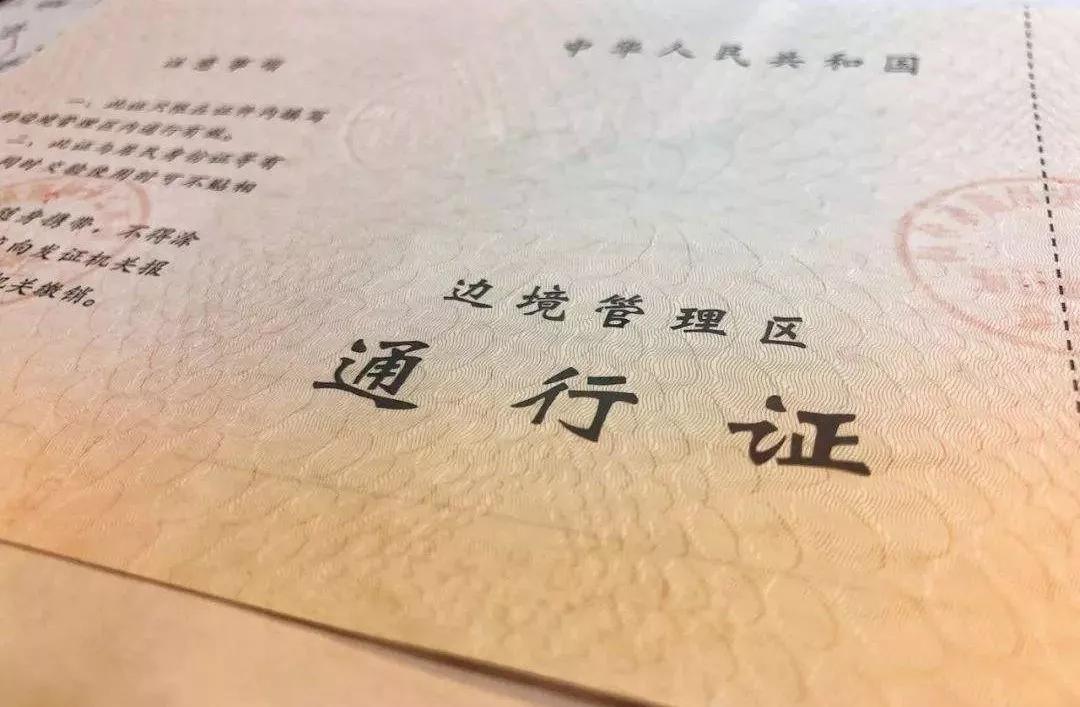 注意事项
一、此证只限在证件内填写
的边境管理区内通行有效。
二、此证与居民身份证等有
同时交验使用时可不贴相
随身携带，不得涂
向发证机关报
机关缴销。
中华人民共和国
边境管理区
通行证